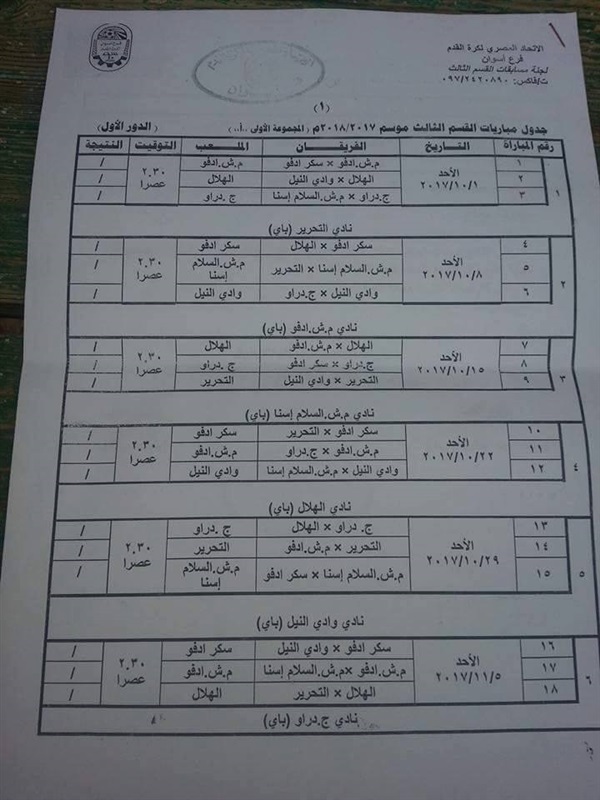 الاتحاد المصري لكرة القدم
فرع أسوان
لجنة مسابقات القسم الثالث
ت/فاكس: ٠٩٧/٢٤٢٠٨٩٠
(١)
جدول مباريات القسم الثالث موسم ٢٠١٨/٢٠١٧م (المجموعة الأولى ..أ..) (الدور الأول)
رقم المباراة التاريخ الفريقان الملعب التوقيت النتيجة
١ الأحد ٢٠١٧/١٠/١ ٢.٣٠ عصرا
١ م.ش.ادفو × سكر ادفو م.ش.ادفو /
٢ الهلال × وادي النيل الهلال /
٣ ج.دراو × م.ش.السلام إسنا ج.دراو /
نادي التحرير (باي)
٢ الأحد ٢٠١٧/١٠/٨ ٢.٣٠ عصرا
٤ سكر ادفو × الهلال سكر ادفو /
٥ م.ش.السلام إسنا × التحرير م.ش.السلام إسنا /
٦ وادي النيل × ج.دراو وادي النيل /
نادي م.ش.ادفو (باي)
٣ الأحد ٢٠١٧/١٠/١٥ ٢.٣٠ عصرا
٧ الهلال × م.ش.ادفو الهلال /
٨ ج.دراو × سكر ادفو ج.دراو /
٩ التحرير × وادي النيل التحرير /
نادي م.ش.السلام إسنا (باي)
٤ الأحد ٢٠١٧/١٠/٢٢ ٢.٣٠ عصرا
١٠ سكر ادفو × التحرير سكر ادفو /
١١ م.ش.ادفو × ج.دراو م.ش.ادفو /
١٢ وادي النيل × م.ش.السلام إسنا وادي النيل /
نادي الهلال (باي)
٥ الأحد ٢٠١٧/١٠/٢٩ ٢.٣٠ عصرا
١٣ ج. دراو × الهلال ج. دراو /
١٤ التحرير × م.ش.ادفو التحرير /
١٥ م.ش.السلام إسنا × سكر ادفو م.ش.السلام إسنا /
نادي وادي النيل (باي)
٦ الأحد ٢٠١٧/١١/٥ ٢.٣٠ عصرا
١٦ سكر ادفو × وادي النيل سكر ادفو /
١٧ م.ش.ادفو ×م.ش.السلام إسنا م.ش.ادفو /
١٨ الهلال × التحرير الهلال /
نادي ج.دراو (باي)